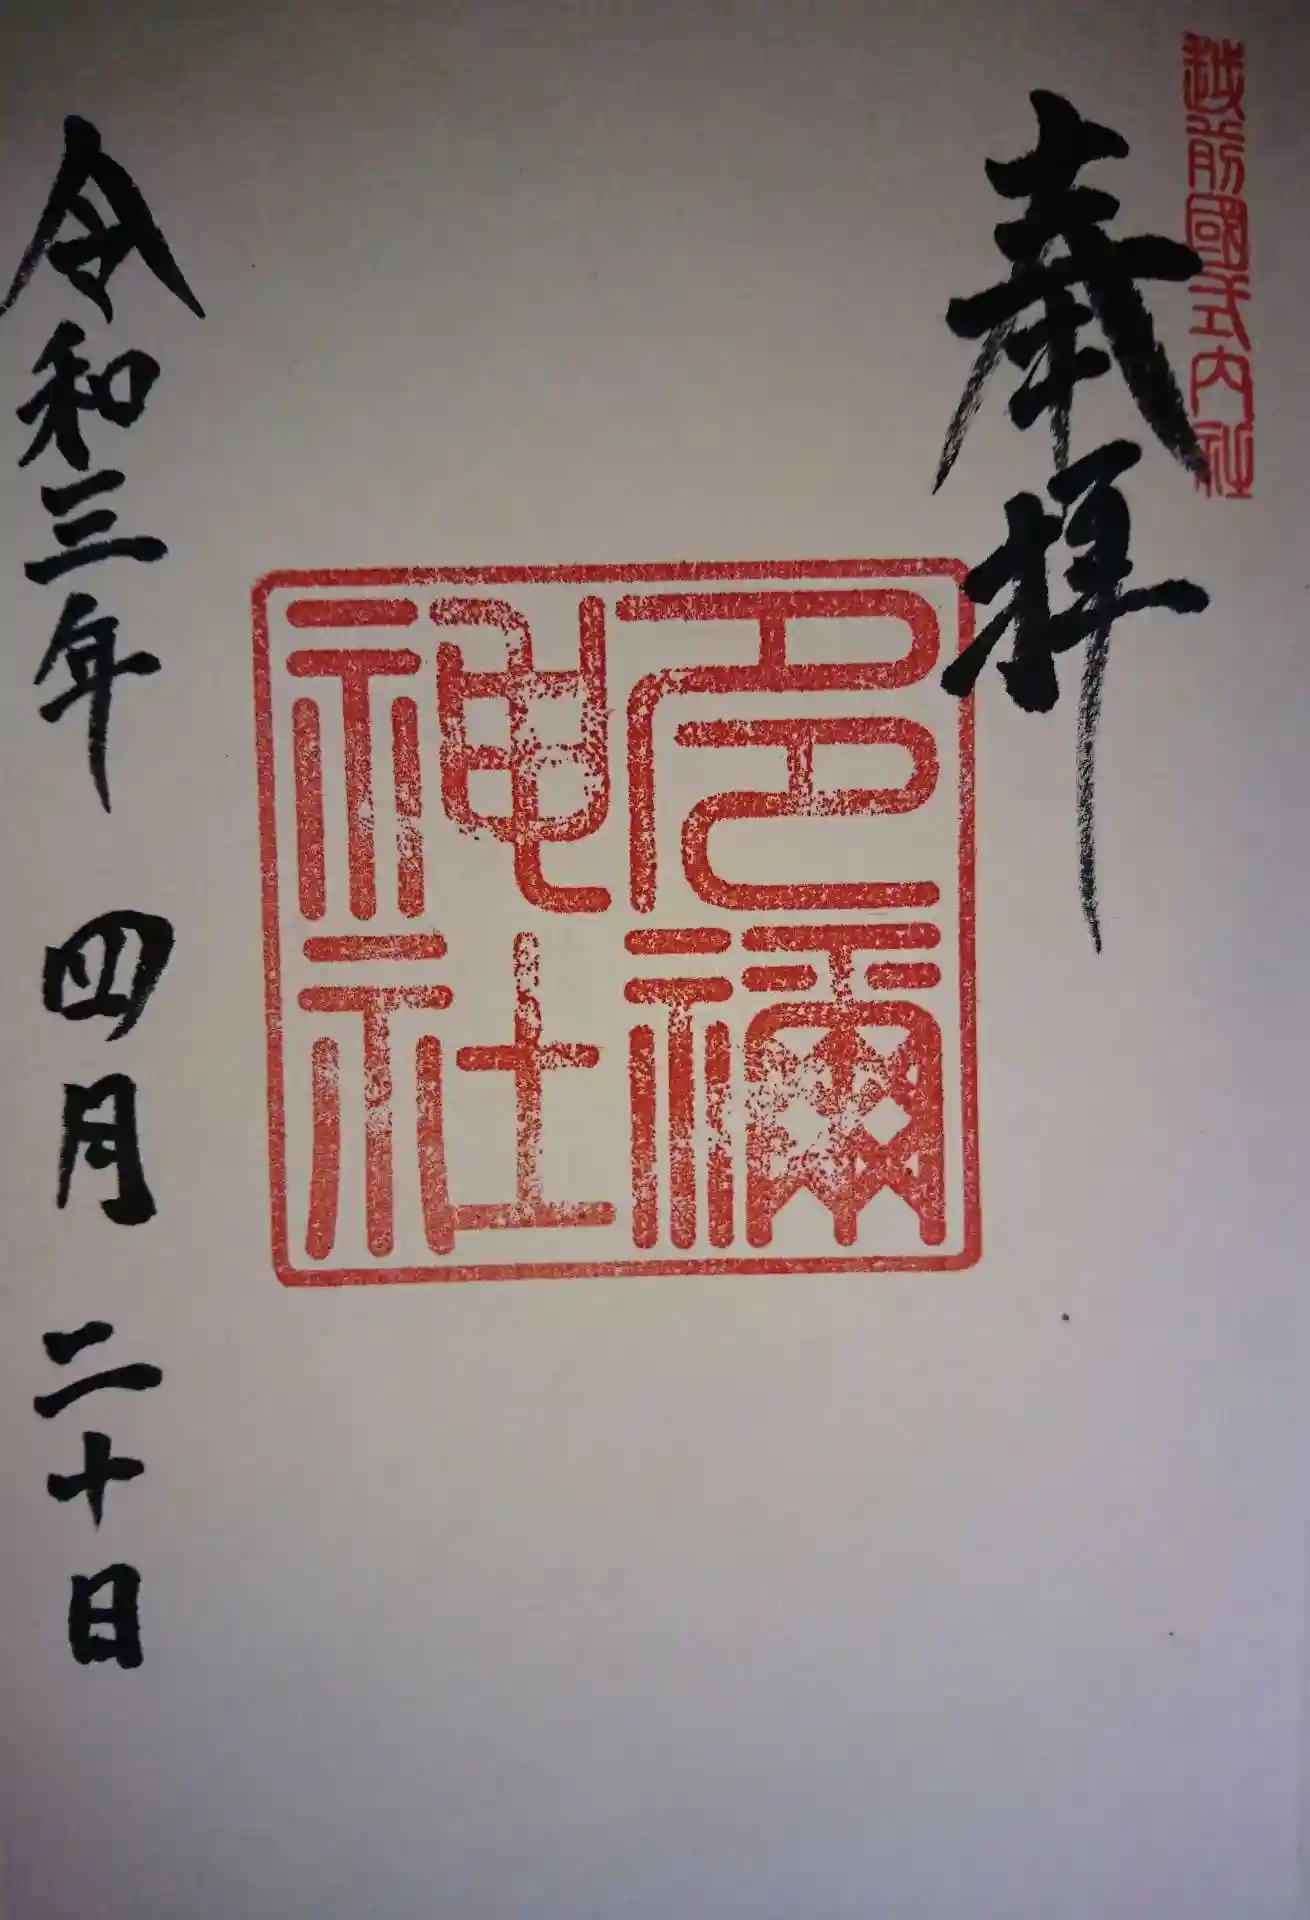 越前國式内社
奉拝
多禰
神社
令和三年 四月 二十日